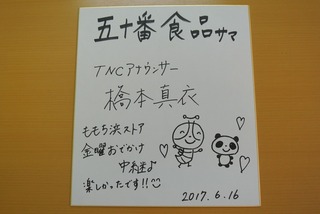 五十番食品サマ
TNCアナウンサー
橋本真衣
ももち浜ストア
金曜おでかけ
中継♪
楽しかったです!!
2017.6.16